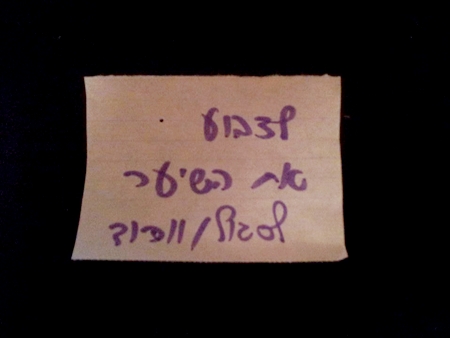 לצבוע
את השיער
לסגול/וורוד